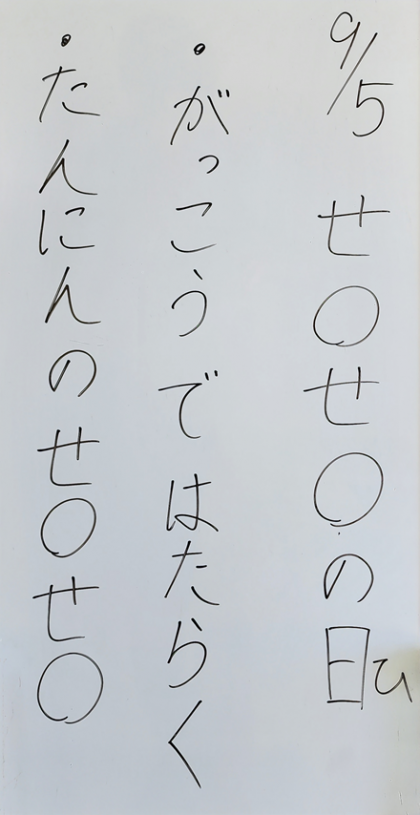 9/5 せ○せ○の日ひ
・がっこうではたらく
・たんにんのせ○せ○